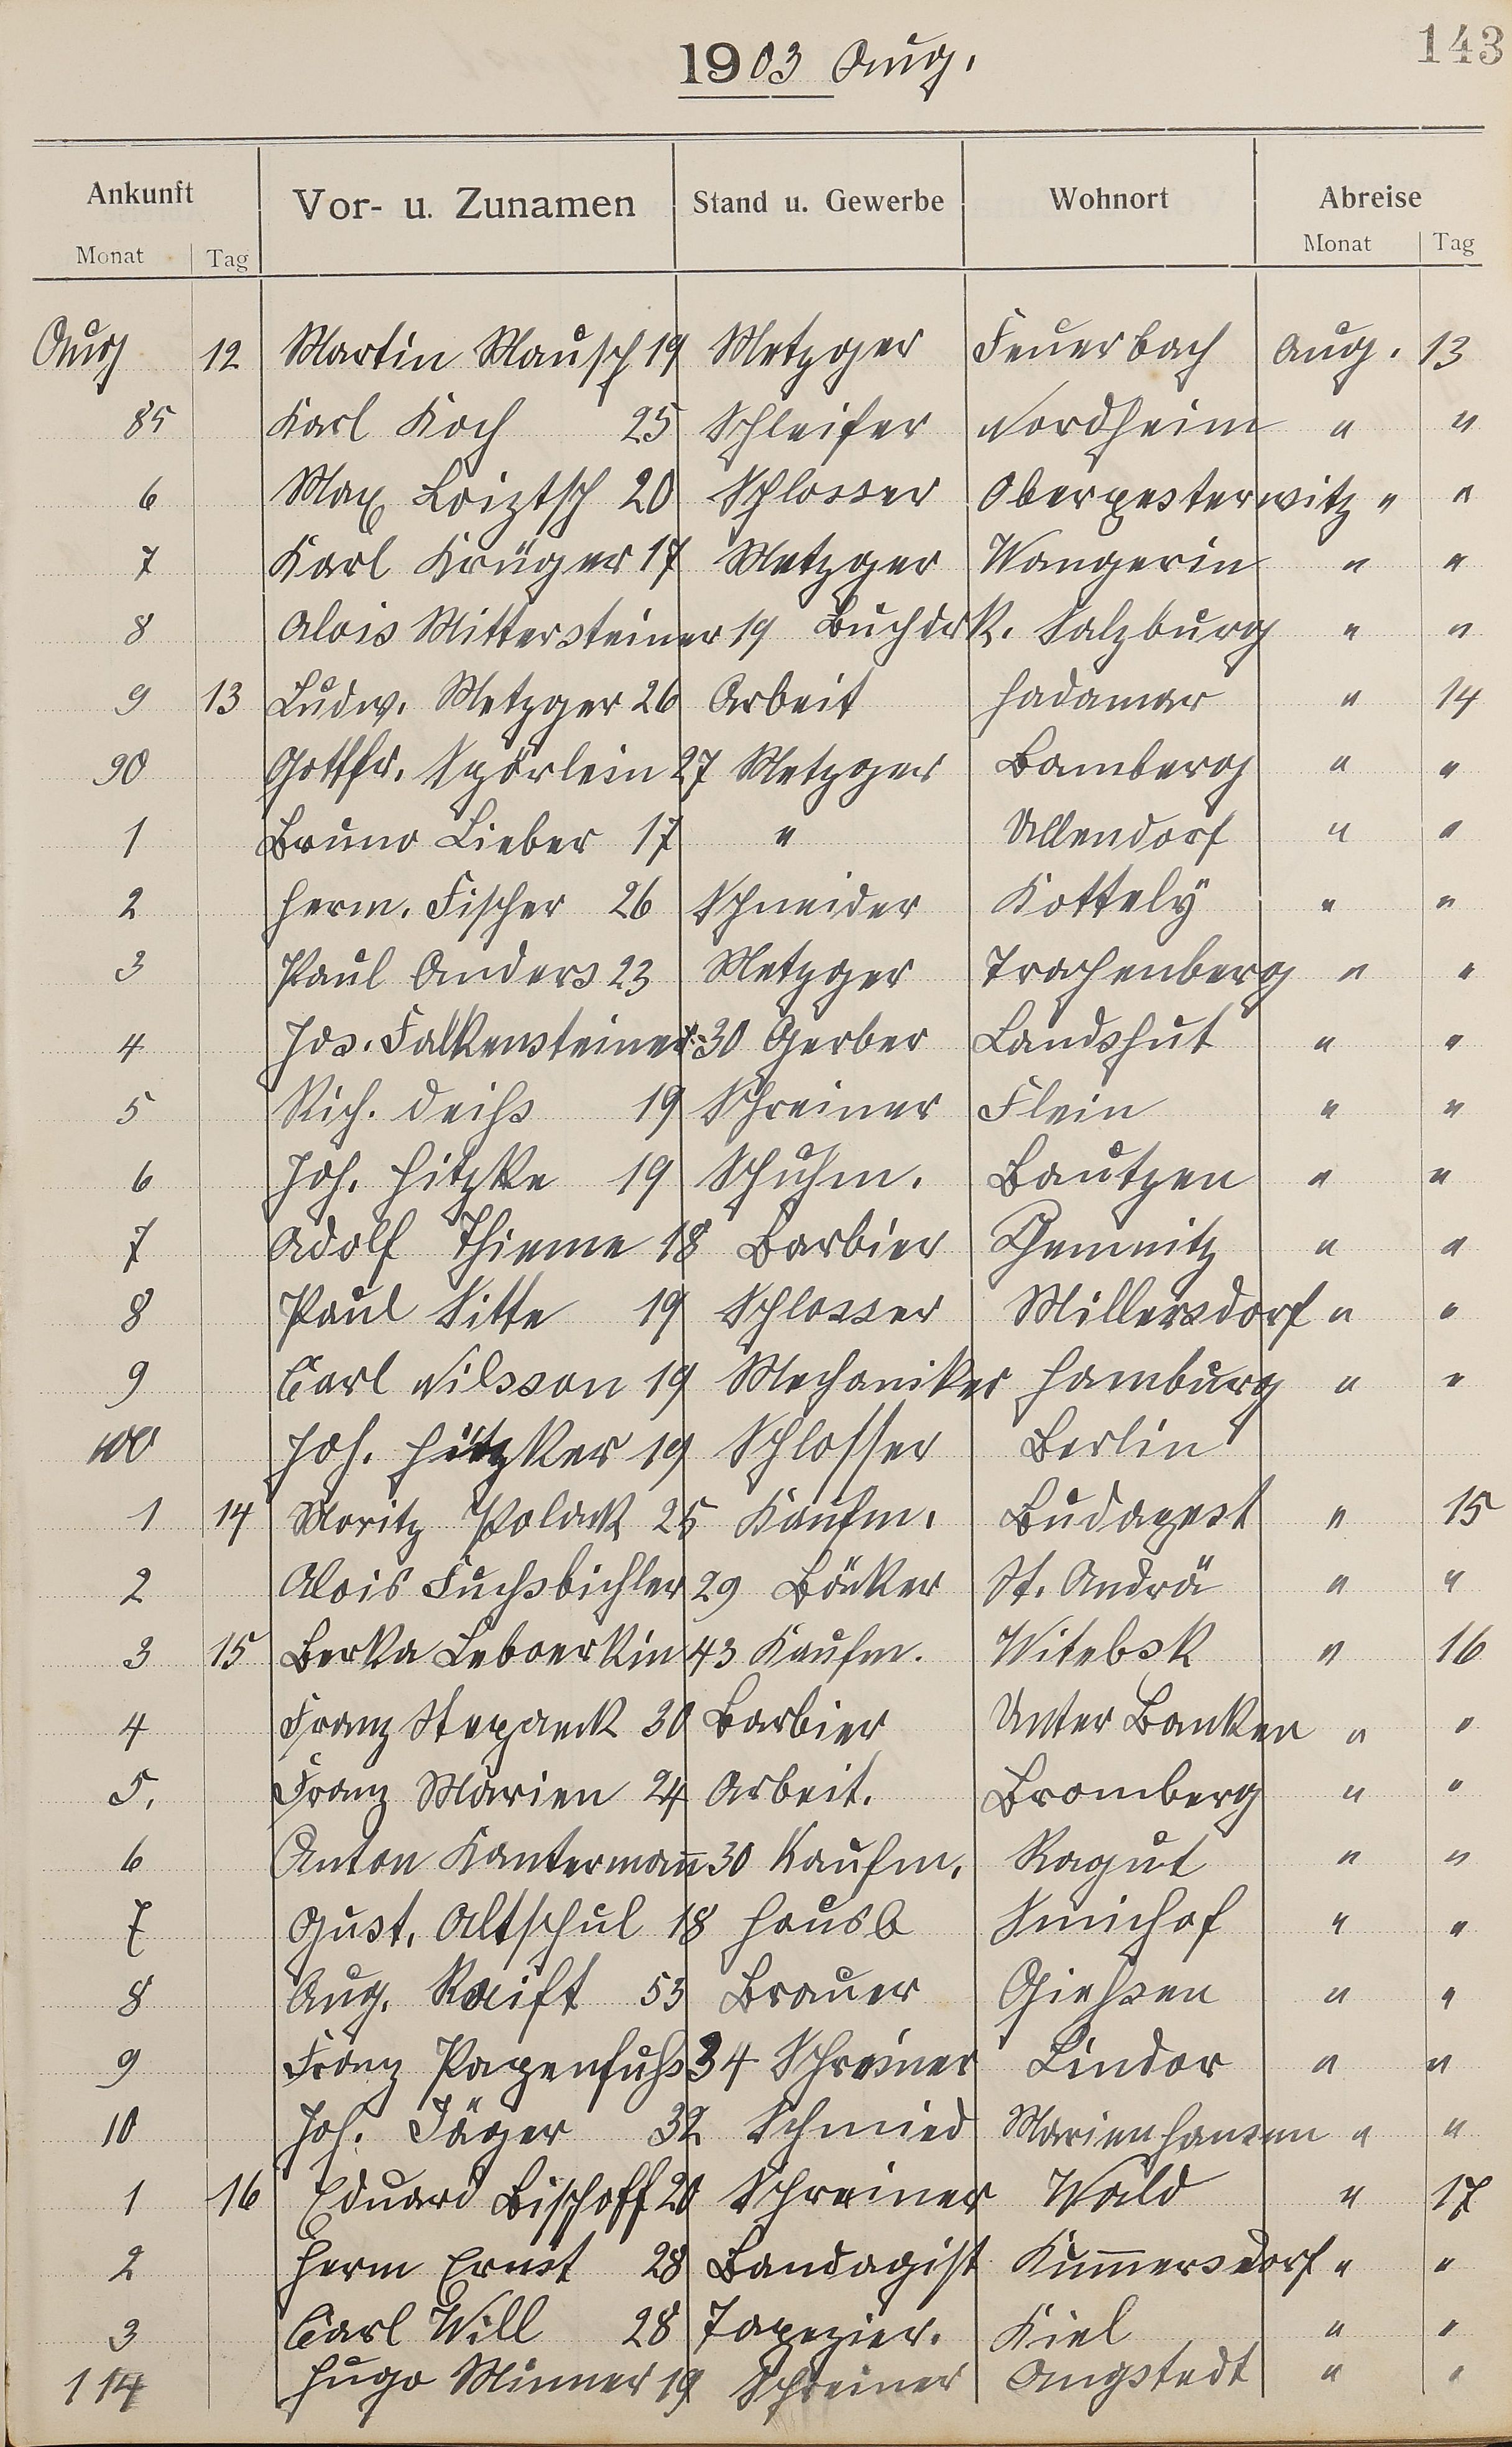 143
1903 Aug.
Ankunft Vor- u. Zunamen Stand u. Gewerbe Wohnort Abreise
Monat Tag Monat Tag
Aug 12 Martin Mausch 19 Metzger Feuerbach Aug. 13
85 Karl Koch 25 Schleifer Nordheim " "
6 Max Loiztsch 20 Schlosser Oberpesterwitz " "
7 Karl Krüger 17 Metzger Wangerin " "
8 Alois Mittersteiner 19 Buchdrk. Salzburg " "
9 13 Ludw. Metzger 26 Arbeit Hadamar " 14
90 Gottfr. Spörlein 27 Metzger Bamberg " "
1 Bruno Lieber 17 " Allendorf " "
2 Herm. Fischer 26 Schneider Kottely " "
3 Paul Anders 23 Metzger Trachenberg " "
4 Jos. Falkensteiner 30 Gerber Landshut " "
5 Rich. Deihs 19 Schreiner Flein " "
6 Joh. Hitzke 19 Schuhm. Bautzen " "
7 Adolf Thieme 18 Barbier Chemnitz " "
8 Paul Sitte 19 Schlosser Millersdorf " "
9 Carl Nilsson 19 Mechaniker Hamburg " "
100 Joh. Hützker 19 Schlosser Berlin
1 14 Moritz Polack 25 Kaufm. Budapest " 15
2 Alois Fuchsbichler 29 Bäcker St. Andrä " "
3 15 Berka Leboerkin 43 Kaufm. Witebsk " 16
4 Franz Stepanek 30 Barbier Unter Banken " "
5. Franz Marien 24 Arbeit. Bromberg " "
6 Anton Kantermañ 30 Kaufm. Ragut " "
7 Gust. Altschul 18 Hausb Smichof " "
8 Aug. Raift 53 Brauer Giehsen " "
9 Franz Papenfuhs 34 Schreiner Lindor " "
10 Joh. Jäger 32 Schmied Marienhausen " "
1 16 Eduard Bischoff 20 Schreiner Wald " 17
2 Herm Ernst 28 Bandagist Kum̄ersdorf " "
3 Carl Will 28 Tapezier. Kiel " "
114 Hugo Minner 19 Schreiner Angstedt " "